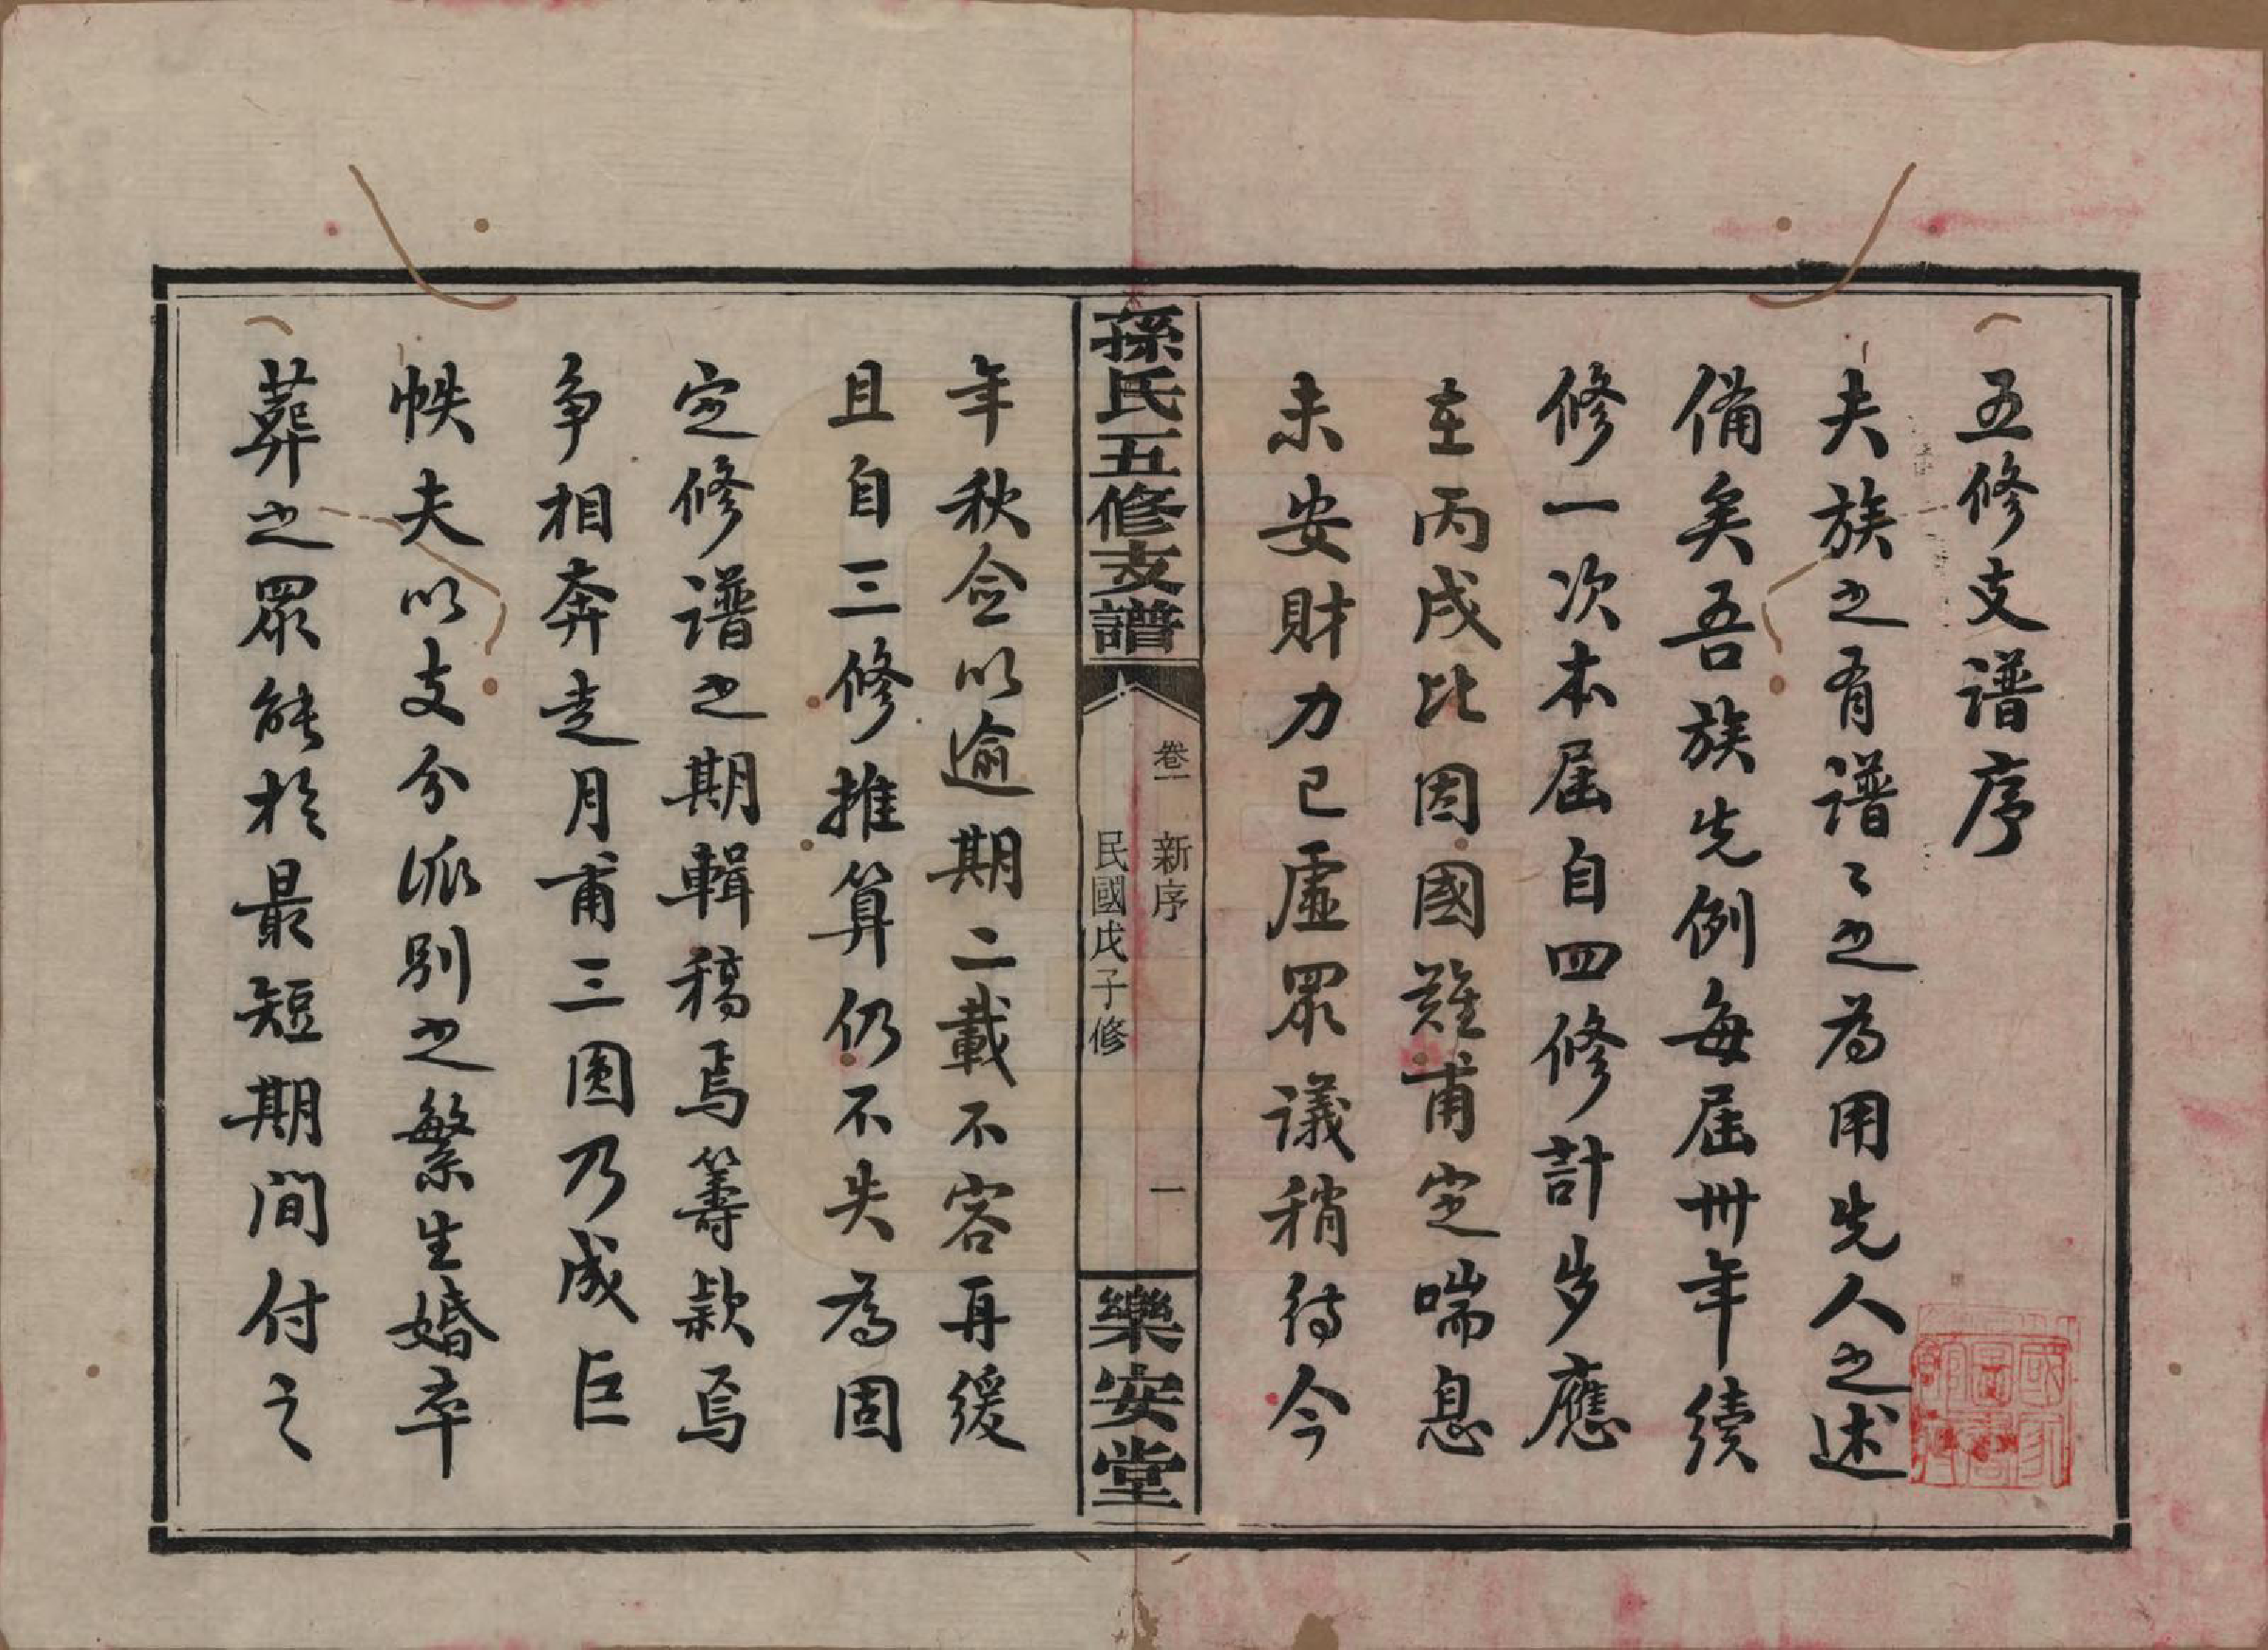 五修支譜序
夫族之有譜〻之為用先人之述
備矣吾族先例每屆卅年續
修一次本屆自四修計歩應
在丙戌比因國難甫定喘息
未安財力已虛眾議稍待今
孫氏五修支譜
卷一 新序 一
民國戊子修
樂安堂
年秋僉以逾期二載不容再緩
且自三修推算仍不失為固
定修譜之期輯稿焉籌款焉
爭相奔走月甫三圓乃成巨
帙夫以支分派別之繁生婚卒
葬之眾能於最短期間付之
國家圖書館藏